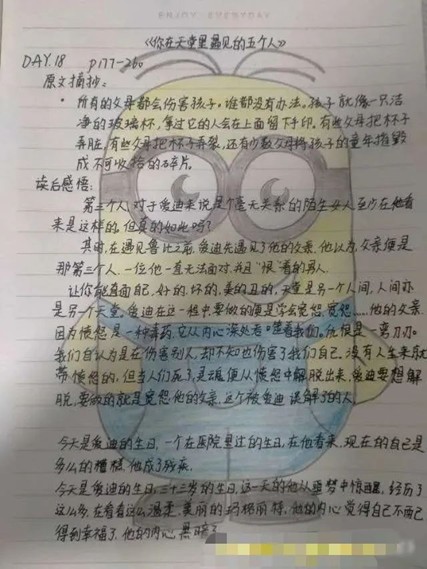 ENJOY EVERYDAY
《你在天堂里遇见的五个人》
DAY.18 p177-260
原文摘抄：
• 所有的父母都会伤害孩子。谁都没有办法。孩子就像一只洁
净的玻璃杯，拿过它的人会在上面留下手印。有些父母把杯子
弄脏，有些父母把杯子弄裂，还有少数父母将孩子的童年摧毁
成不可收拾的碎片。
读后感悟：
第三个人，对于爱迪来说是个毫无关系的陌生女人，至少在他看
来是这样的，但真的如此吗？
其时，在遇见鲁比之前，爱迪先遇见了他的父亲，他以为，父亲便是
那第三个人，一位他一直无法面对，并且“恨”着的男人。
让你能直面自己，好的，坏的，美的，丑的，天堂是另一个人间，人间亦
是另一个天堂，爱迪在这一程中要做的便是学会宽恕，宽恕……他的父亲，
因为愤怒是一种毒药，它从内心深处吞噬着我们，仇恨是一弯刀刃，
我们自认为是在伤害别人，却不知也伤害了我们自己，没有人生来就
带愤怒的，但当人们死了，灵魂便从愤怒中解脱出来，爱迪要想解
脱，要做的就是宽恕他的父亲，这个被爱迪误解了的人
今天是爱迪的生日，一个在医院里过的生日，在他看来，现在的自己是
多么的糟糕，他成了残疾，
今天是爱迪的生日，三十三岁的生日，这一天的他从噩梦中惊醒，经历了
这么多，在看着这么温柔，美丽的玛格丽特，他的内心觉得自己不配
得到幸福了，他的内心，黑暗了